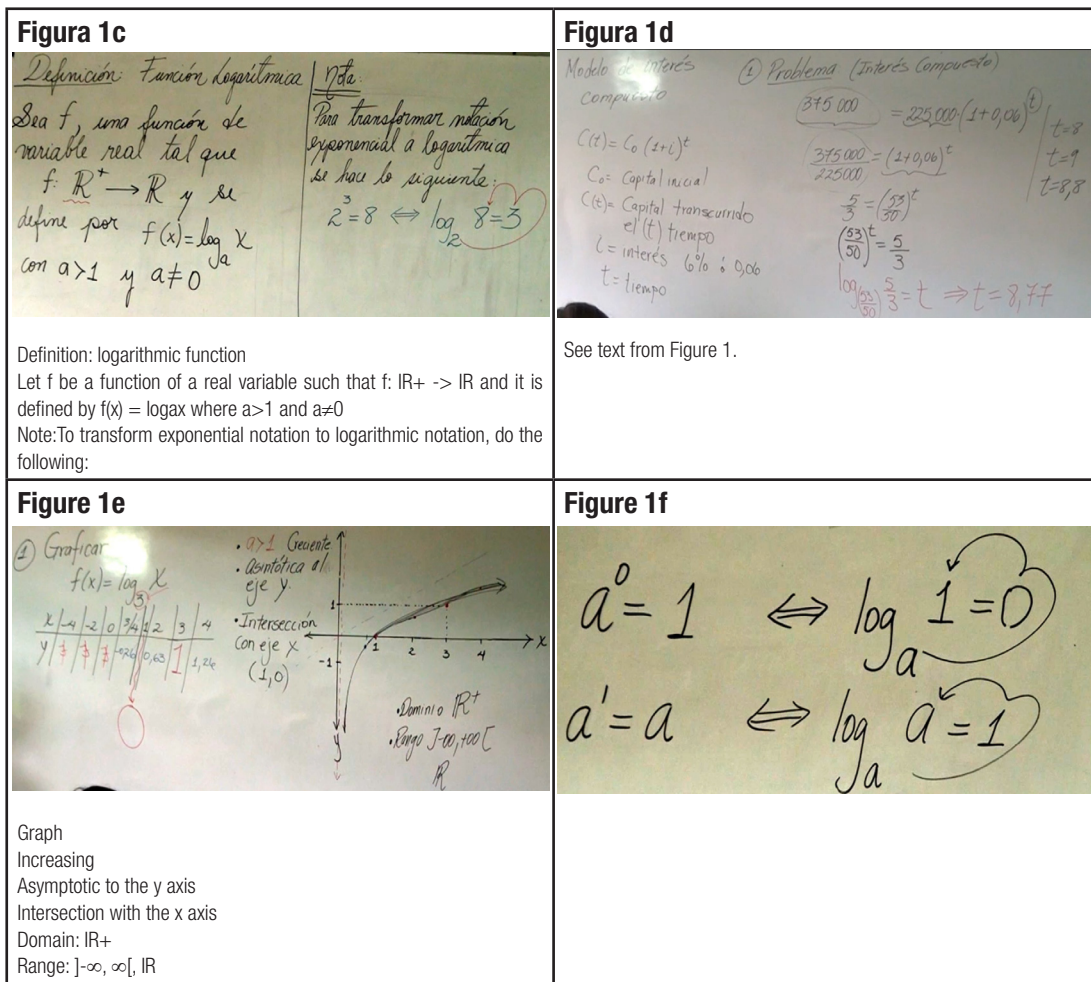 Figura 1c
Definición: Función Logarítmica
Sea f, una función de
variable real tal que
f: ℝ⁺ → ℝ y se
define por f(x)=logₐ x
con a>1 y a≠0
Nota:
Para transformar notación
exponencial a logarítmica
se hace lo siguiente:
2³=8 ⇔ log₂ 8=3
Definition: logarithmic function
Let f be a function of a real variable such that f: IR+ -> IR and it is
defined by f(x) = logax where a>1 and a≠0
Note:To transform exponential notation to logarithmic notation, do the
following:
Figura 1d
Modelo de interés
compuesto
C(t)= C₀ (1+i)ᵗ
C₀= Capital inicial
C(t)= Capital transcurrido
el (t) tiempo
i= interés 6% ó 0,06
t= tiempo
① Problema (Interés Compuesto)
375 000 = 225 000·(1+0,06)ᵗ
375 000/225 000 = (1+0,06)ᵗ
5/3 = (53/50)ᵗ
(53/50)ᵗ = 5/3
log(53/50) 5/3 = t ⇒ t= 8,77
t=8
t=9
t=8,8
See text from Figure 1.
Figure 1e
① Graficar
f(x)= log₃ x
x | -4 | -2 | 0 | 3/4 | 1 | 2 | 3 | 4
y | ∄ | ∄ | ∄ | -0,26 | 0,63 | 1 | 1,26
• a>1 Creciente
• Asintótica al
eje y.
• Intersección
con eje x
(1,0)
1
-1
1 2 3 4
x
y
• Dominio ℝ⁺
• Rango ]-∞,+∞[
ℝ
Graph
Increasing
Asymptotic to the y axis
Intersection with the x axis
Domain: IR+
Range: ]-∞, ∞[, IR
Figure 1f
a⁰ = 1 ⇔ logₐ 1 = 0
a¹ = a ⇔ logₐ a = 1